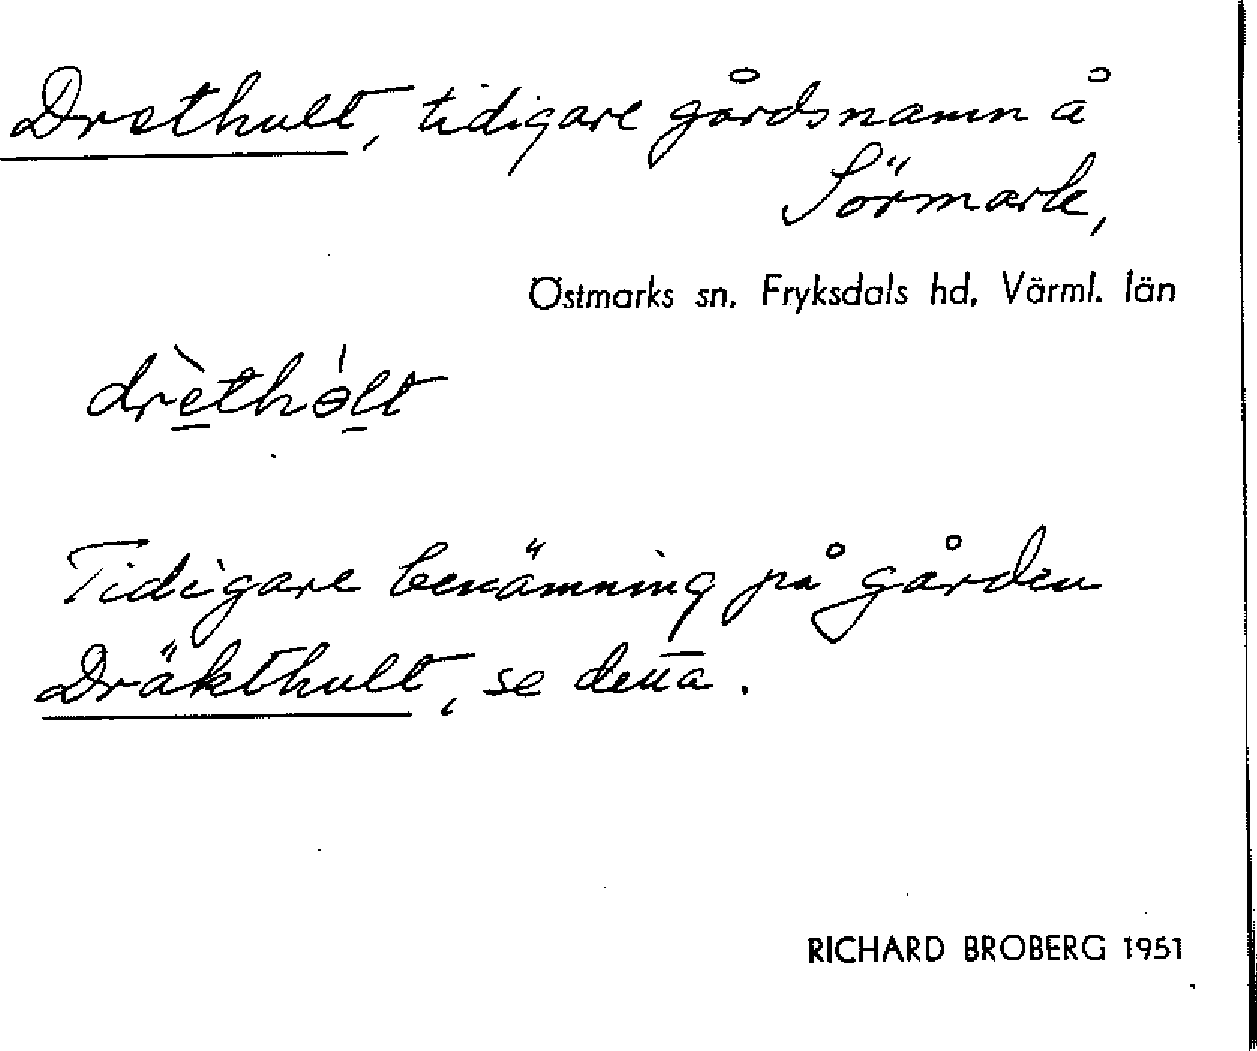 Drethult, tidigare gårdsnamn å
Sörmark,
Östmarks sn. Fryksdals hd, Värml. län
drèthólt
Tidigare benämning på gården
Dräkthult, se detta.
RICHARD BROBERG 1951